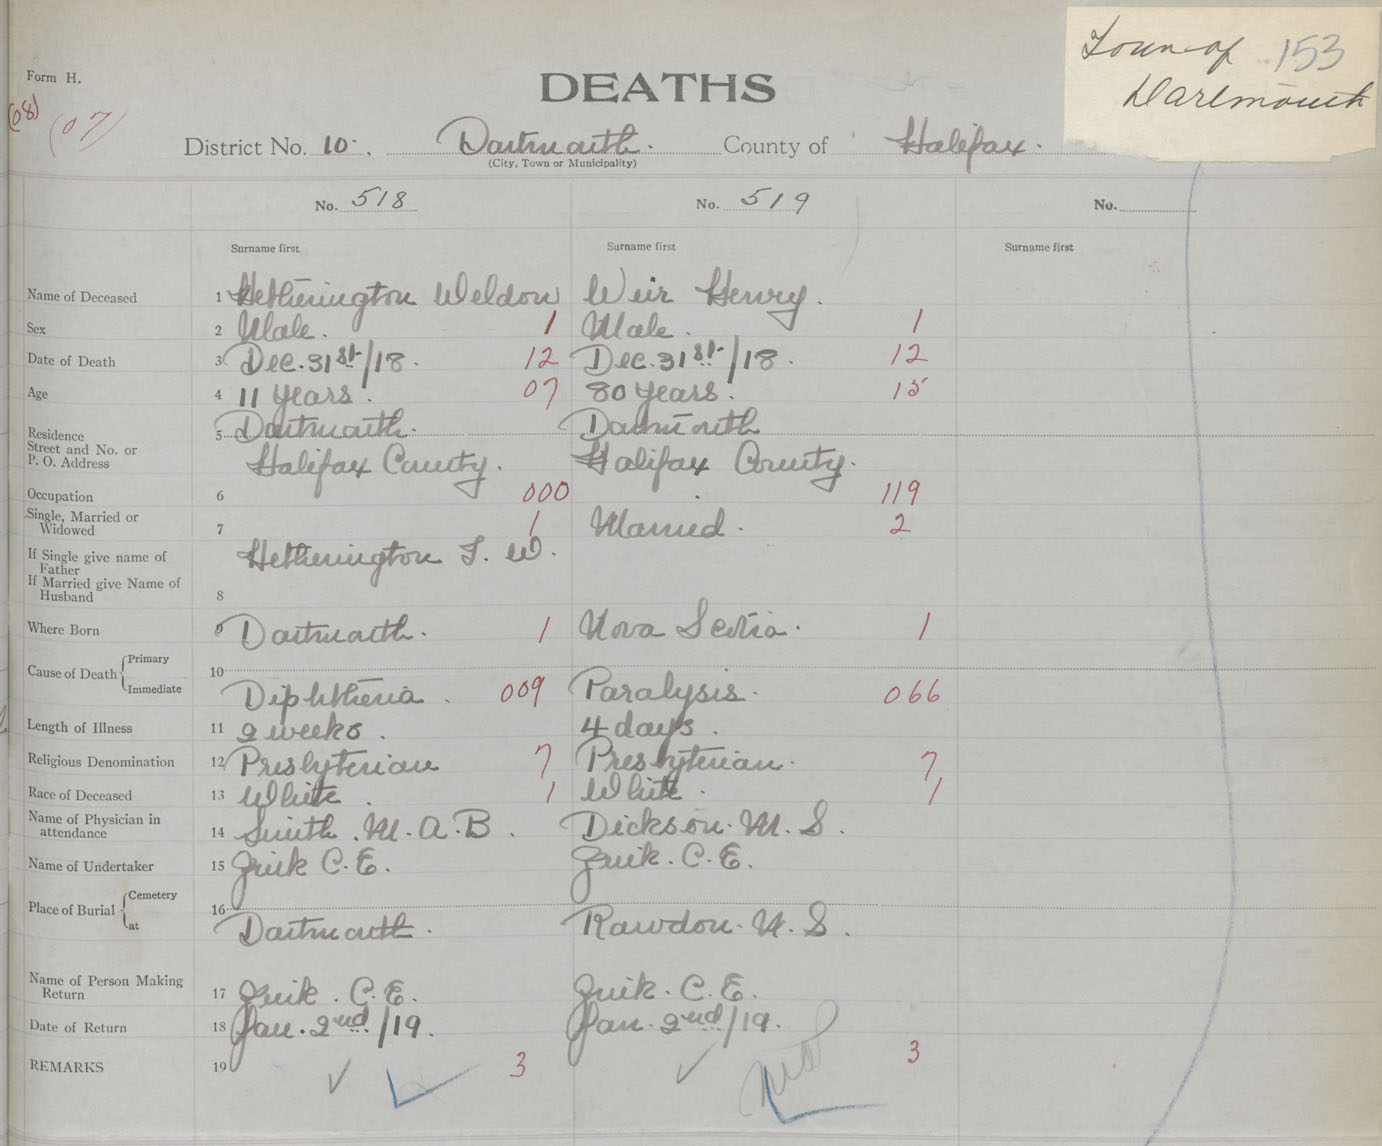 Form H.
DEATHS
Town of 153
Dartmouth
(08)
(07)
District No. 10 , Dartmouth. County of Halifax.
(City, Town or Municipality)
No. 518 No. 519 No.
Surname first Surname first Surname first
Name of Deceased 1 Hetherington Weldon Weir Henry.
Sex 2 Male. 1 Male. 1
Date of Death 3 Dec. 31st/18. 12 Dec. 31st/18. 12
Age 4 11 Years. 07 80 Years. 15
Residence 5 Dartmouth. Dartmouth
Street and No. or
P. O. Address Halifax County. Halifax County.
Occupation 6 000 119
Single, Married or
Widowed 7 1 Married. 2
If Single give name of
Father Hetherington T. W.
If Married give Name of
Husband 8
Where Born 9 Dartmouth. 1 Nova Scotia. 1
Cause of Death Primary 10
Immediate Diphtheria. 009 Paralysis. 066
Length of Illness 11 2 weeks. 4 days.
Religious Denomination 12 Presbyterian 7 Presbyterian. 7
Race of Deceased 13 White. 1 White. 1
Name of Physician in
attendance 14 Smith. M. A. B. Dickson. M. S.
Name of Undertaker 15 Zink C. E. Zink. C. E.
Place of Burial Cemetery 16
at Dartmouth. Rawdon. N. S.
Name of Person Making
Return 17 Zink. C. E. Zink. C. E.
Date of Return 18 Jan. 2nd/19. Jan. 2nd/19.
REMARKS 19 3 3